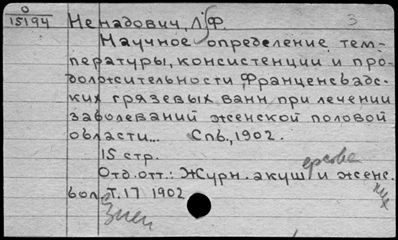 О
15194 Ненадович, Л.Ф. 3
Научное определение тем-
пературы, консистенции и про-
должительности Франценсбадс-
ких грязевых ванн при лечении
заболеваний женской половой
области... Спб., 1902.
15 стр.
Отд. отт.: Журн. акуш. и женс.
бол. Т. 17 1902